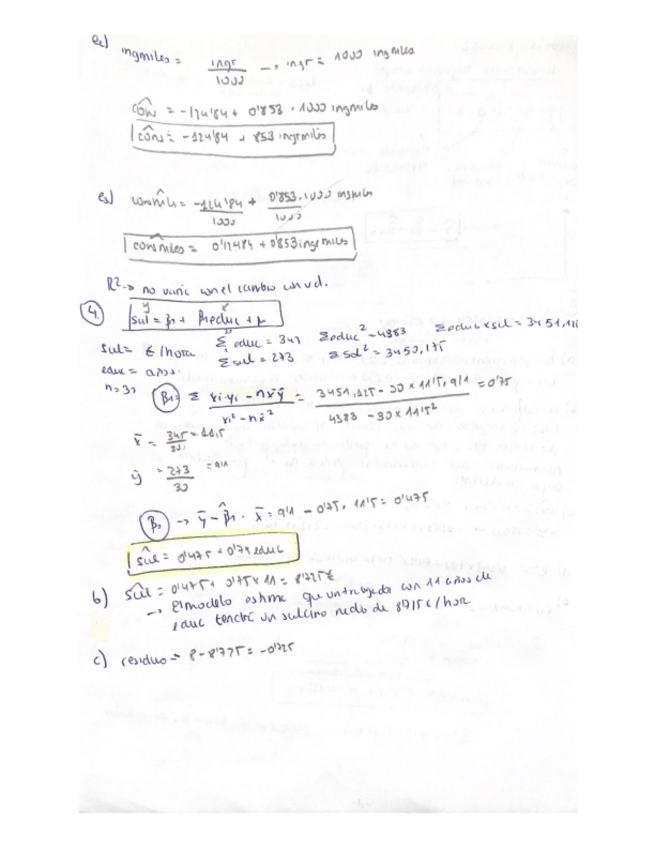 e2) ingmiles = ingr/1000 → ingr = 1000 ingmiles
côns = -124'84 + 0'853 · 1000 ingmiles
côns = -124'84 + 853 ingmiles
e3) consmiles = -124'84/1000 + 0'853·1000 ingmiles/1000
consmiles = 0'12484 + 0'853 ingmiles
R² → no varia con el cambio con ud.
4. sal = β1 + β2educ + μ
y x
sal = €/hora Σ educ = 345 Σeduc² = 4383 Σeduc x sal = 3451,
educ = años. Σ sal = 273 Σ sal² = 3450,175
n = 30 β2 = Σ xi·yi - n x̄ ȳ / xi² - n x̄² = 3451,125 - 30 x 11'5 · 9'1 / 4383 - 30 x 11'5² = 0'75
x̄ = 345/30 = 11,5
ȳ = 273/30 = 9'1
β1 → ȳ - β̂2 · x̄ = 9'1 - 0'75 · 11'5 = 0'475
sâl = 0'475 + 0'75 educ
b) sâl = 0'475 + 0'75 x 11 = 8'725 €
→ El modelo estima que un trabajador con 11 años de
educ tendrá un salario medio de 8'725 €/hor.
c) residuo = 8 - 8'725 = -0'725